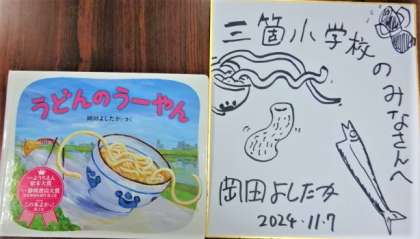 うどんのうーやん
岡田よしたか・さく
三箇小学校
のみなさんへ
岡田よしたか
2024.11.7